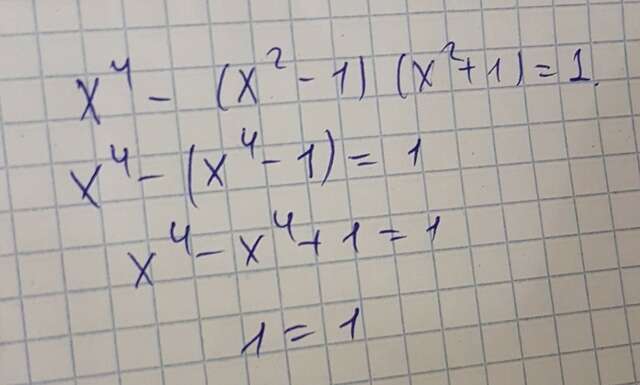 x⁴ - (x² - 1) (x² + 1) = 1.
x⁴ - (x⁴ - 1) = 1
x⁴ - x⁴ + 1 = 1
1 = 1